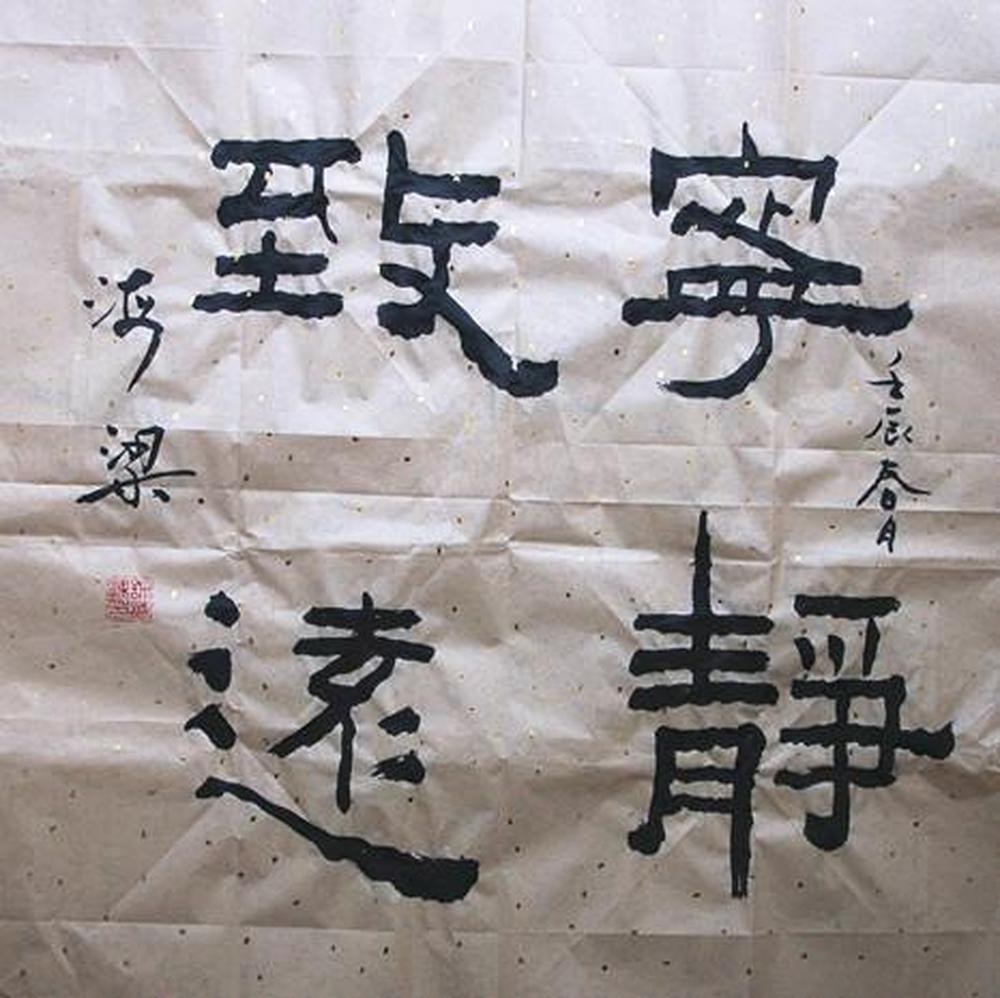 寧靜
致遠
壬辰春月
海梁